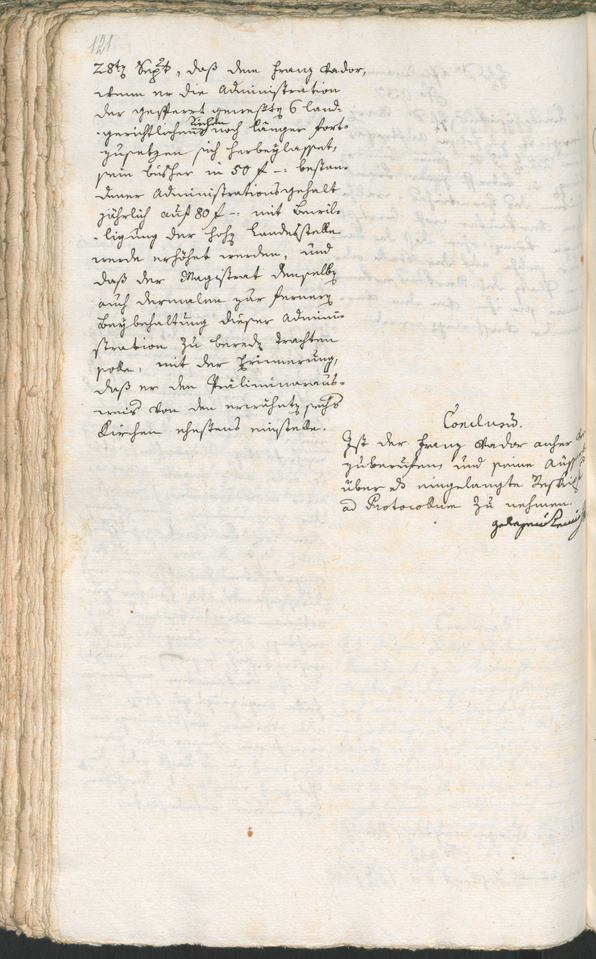 121
28tꝫ Sept, daß dem Franz Vador,
wenn er die Administration
der gesperrt gewestꝫ 6 land-
-gerichtlichen noch länger fort-
zusetzen sich herbeylasset,
sein bisher in 50 f -: bestan-
dener Administrationsgehalt
jährlich auf 80 f -: mit Bewil-
-ligung der hohꝫ Landesstelle
werde erhöhet werden, und
daß der Magistrat denselbꝫ
auch dermalen zur fernerꝫ
Beybehaltung dieser Admini-
stration zu beredꝫ trachten
solle, mit der Erinnerung,
daß er den Präliminaraus-
weis von den erwähntꝫ sechs
Kirchen ehestens einstelle.
Conclusum.
Ist der Franz Vador anher
zuberufen, und seine
über das eingelangte
ad Protocollum zu nehmen.